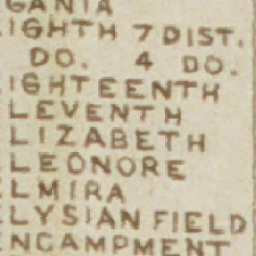 GANIA
IGHTH 7 DIST.
DO. 4 DO.
IGHTEENTH
LEVENTH
LIZABETH
LEONORE
LMIRA
LYSIAN FIELD
NCAMPMENT